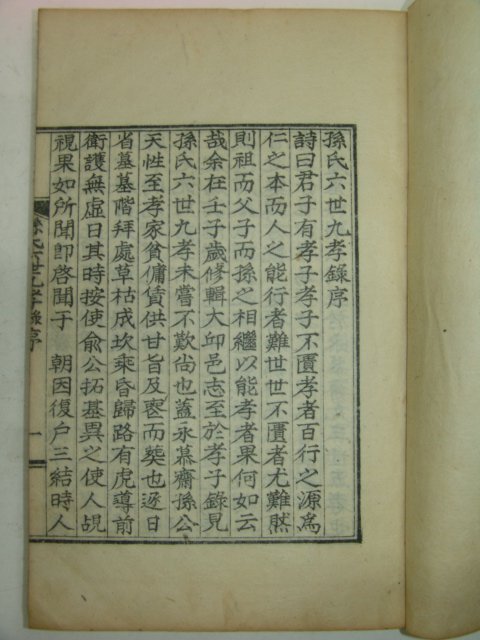 孫氏六世九孝錄序
詩曰君子有孝子孝子不匱孝者百行之源爲
仁之本而人之能行者難世世不匱者尤難然
則祖而父子而孫之相繼以能孝者果何如云
哉余在壬子歲修輯大邱邑志至於孝子錄見
孫氏六世九孝未嘗不歎尙也蓋永慕齋孫公
天性至孝家貧傭賃供甘旨及喪而葬也逐日
省墓墓階拜處草枯成坎乘昏歸路有虎導前
衛護無虛日其時按使兪公拓基異之使人覘
視果如所聞卽啓聞于 朝因復戶三結時人
孫氏六世九孝錄序 一